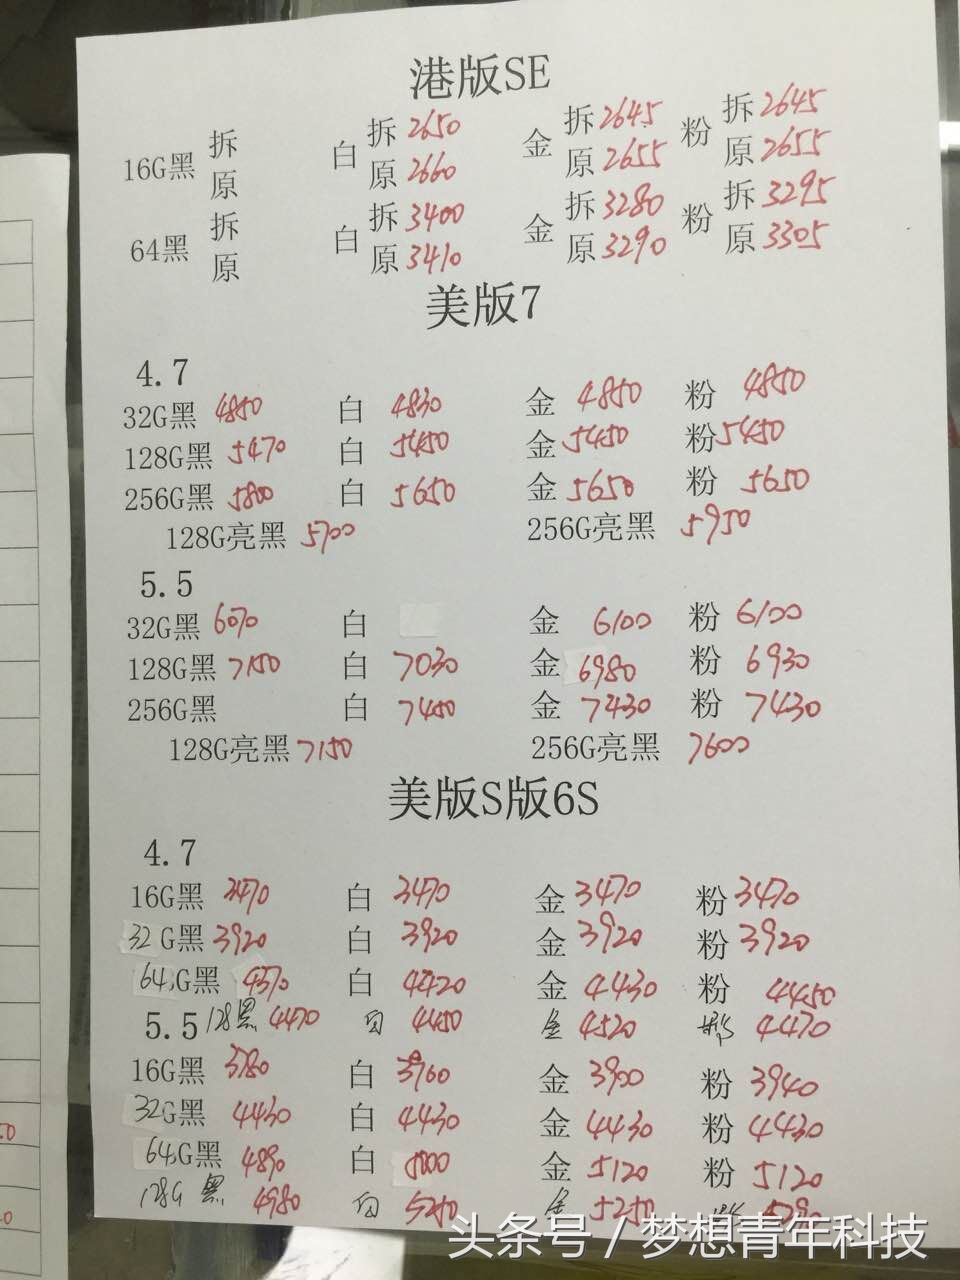 港版SE
拆 白 拆 2650 金 拆 2645 粉 拆 2645
16G黑 原 原 2660 原 2655 原 2655
拆 白 拆 3400 金 拆 3280 粉 拆 3295
64黑 原 原 3410 原 3290 原 3305
美版7
4.7
32G黑 4850 白 4830 金 4850 粉 4850
128G黑 5470 白 5450 金 5450 粉 5450
256G黑 5800 白 5650 金 5650 粉 5650
128G亮黑 5700 256G亮黑 5950
5.5
32G黑 6070 白 金 6100 粉 6100
128G黑 7150 白 7030 金 6980 粉 6930
256G黑 白 7450 金 7430 粉 7430
128G亮黑 7150 256G亮黑 7600
美版S版6S
4.7
16G黑 3470 白 3470 金 3470 粉 3470
32G黑 3920 白 3920 金 3920 粉 3920
64G黑 4370 白 4420 金 4430 粉 4450
5.5 128黑 4470 白 4450 金 4520 粉 4470
16G黑 3780 白 3760 金 3900 粉 3940
32G黑 4430 白 4430 金 4430 粉 4430
64G黑 4890 白 金 5120 粉 5120
128G 黑 4980 白 5250 金 5250 粉
头条号 / 梦想青年科技